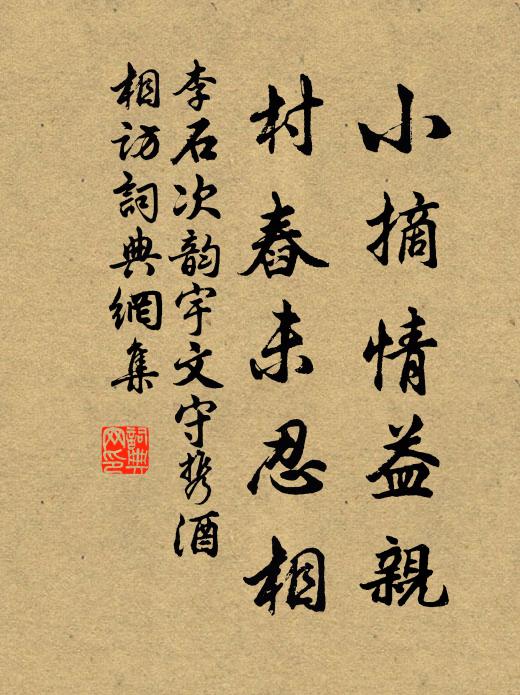 小摘情益親
村舂未忍相
李石次韵宇文守携酒
相訪詞典網集
詞典
网印